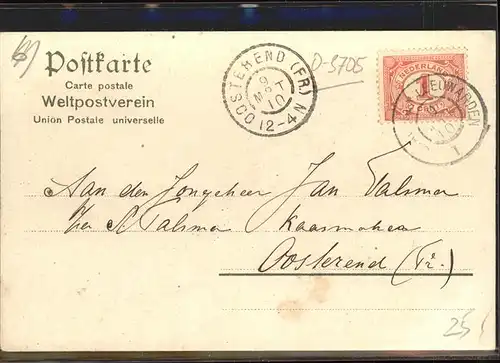 Postkarte
Carte postale
Weltpostverein
Union Postale universelle
OOSTEREND (FR.)
9
MRT
10
12-4N
D-3705
NEDERLAND
1
LEEUWARDEN
Aan den Jongeheer Jan Talsma
p/a A Talsma Kaasmaker
Oosterend (Fr.)
25